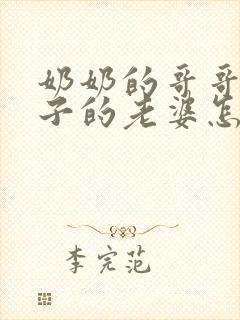 奶奶的哥哥
子的老婆怎
李完范